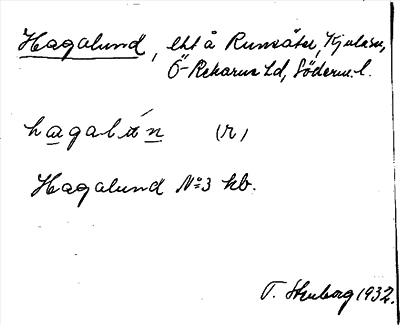 Hagalund, lht å Runsäter, Kjulasn,
Ö-Rekarne hd, Söderm.l.
hagalún (r)
Hagalund No 3 kb.
T. Stenborg 1932.